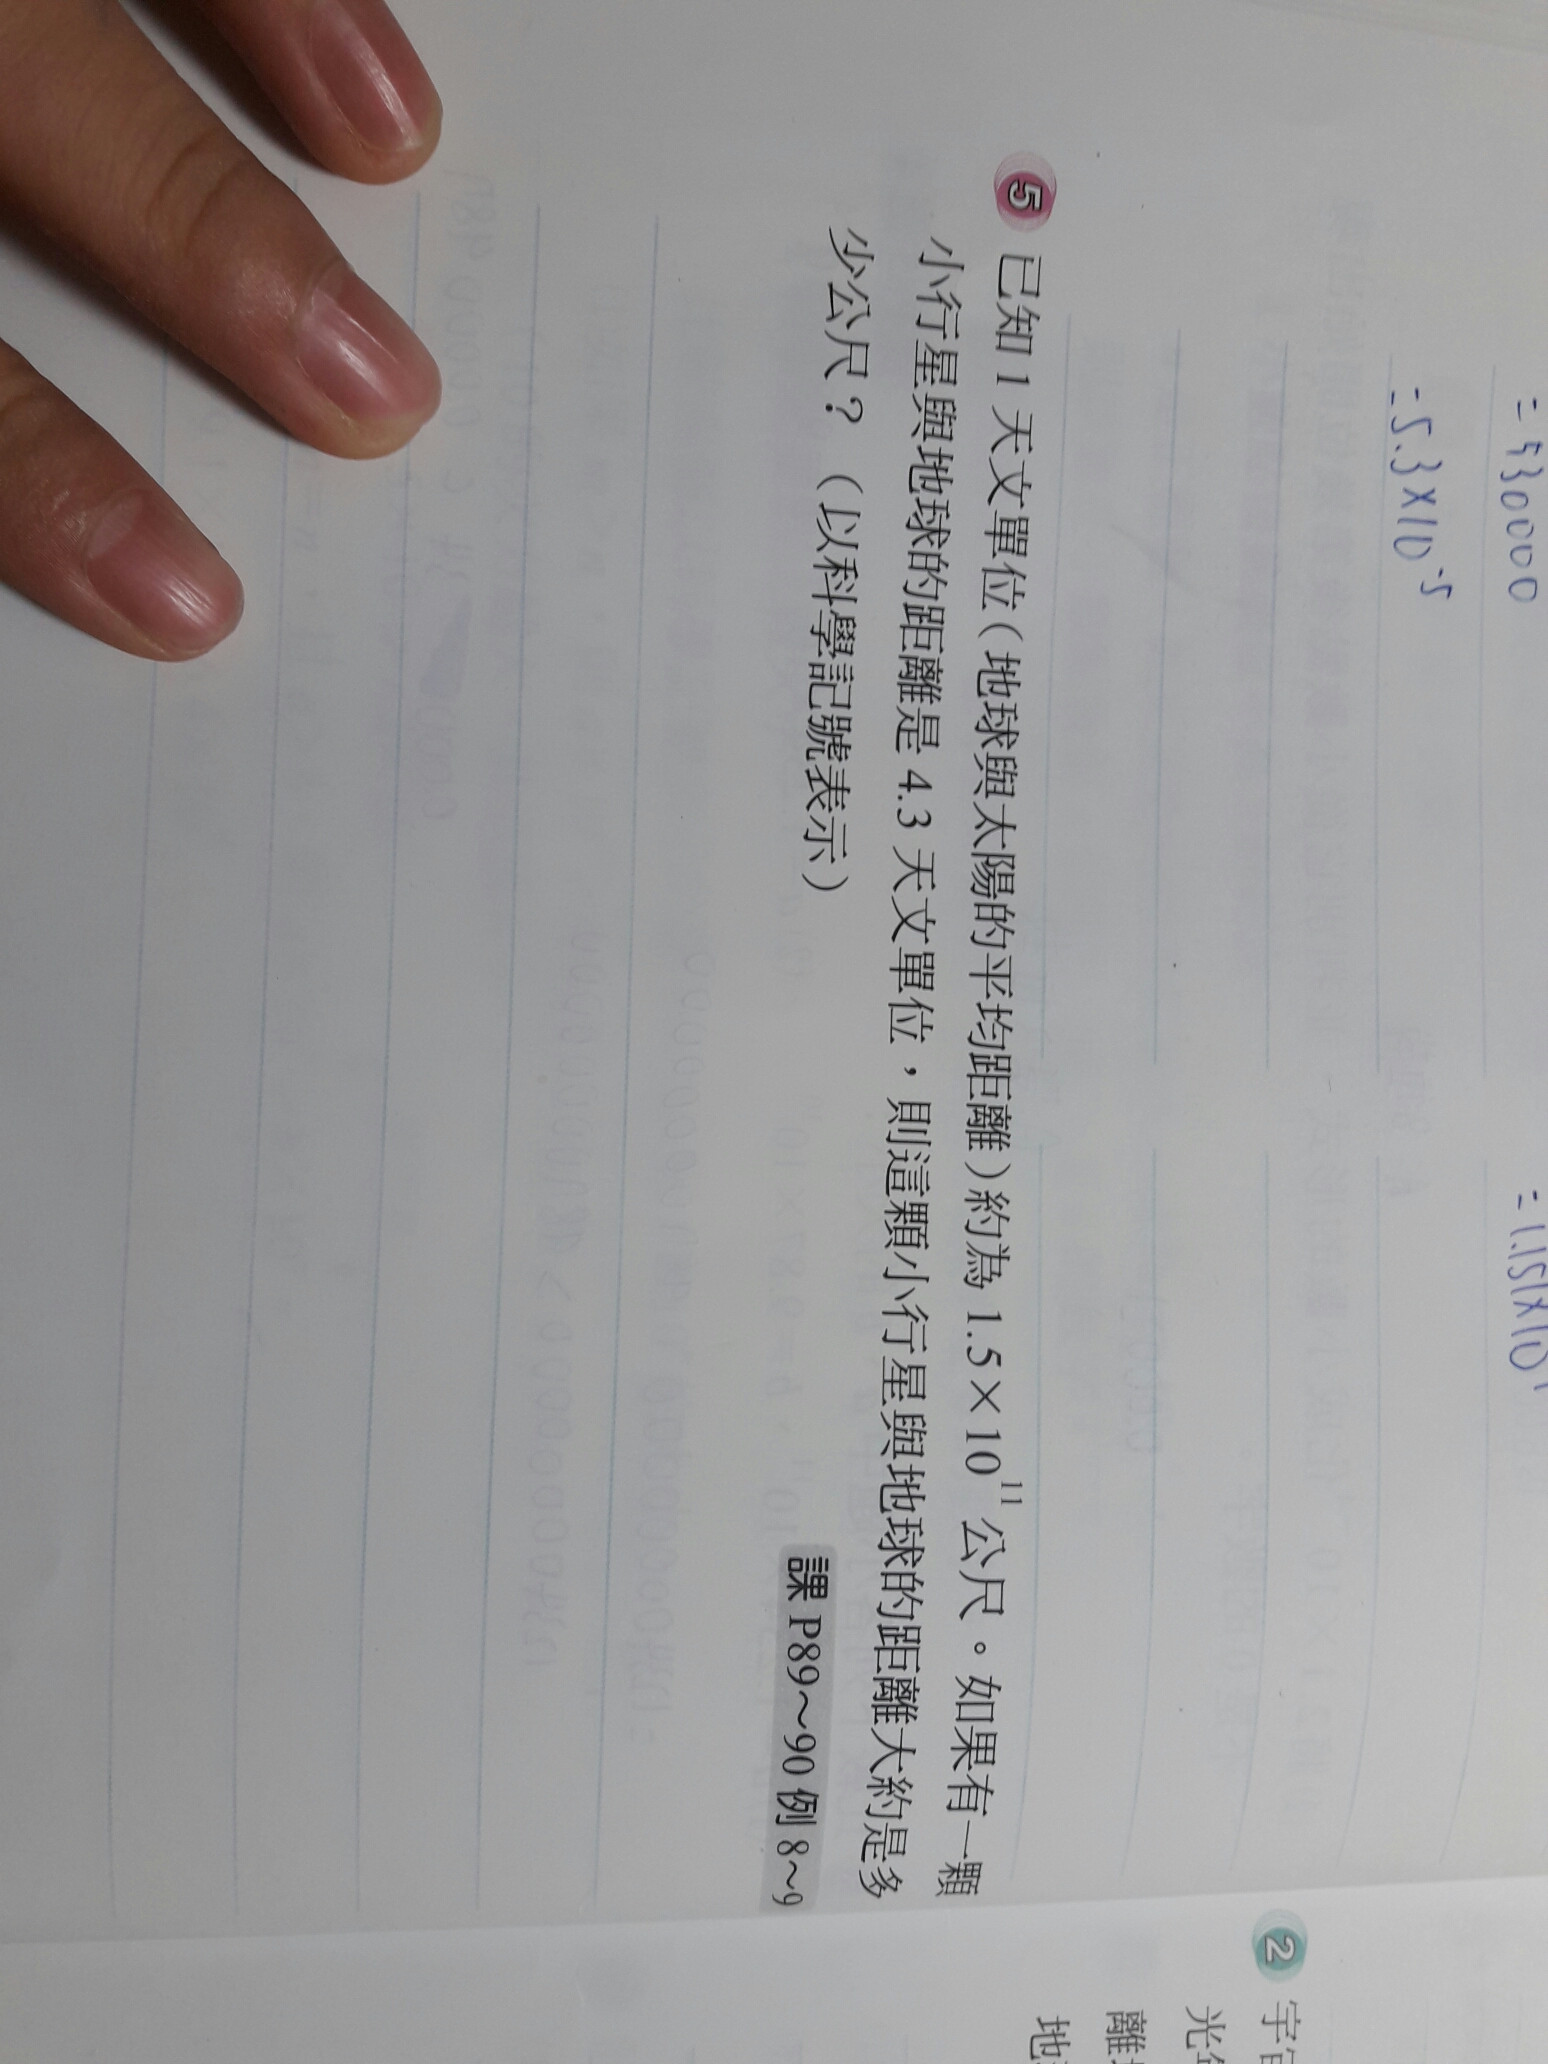 = 530000
= 5.3×10⁻⁵
= 1.151×10
5 已知 1 天文單位(地球與太陽的平均距離)約為 1.5×10¹¹ 公尺。如果有一顆
小行星與地球的距離是 4.3 天文單位，則這顆小行星與地球的距離大約是多
少公尺？（以科學記號表示）
課 P89～90 例 8～9
2 宇宙
光年
離
地